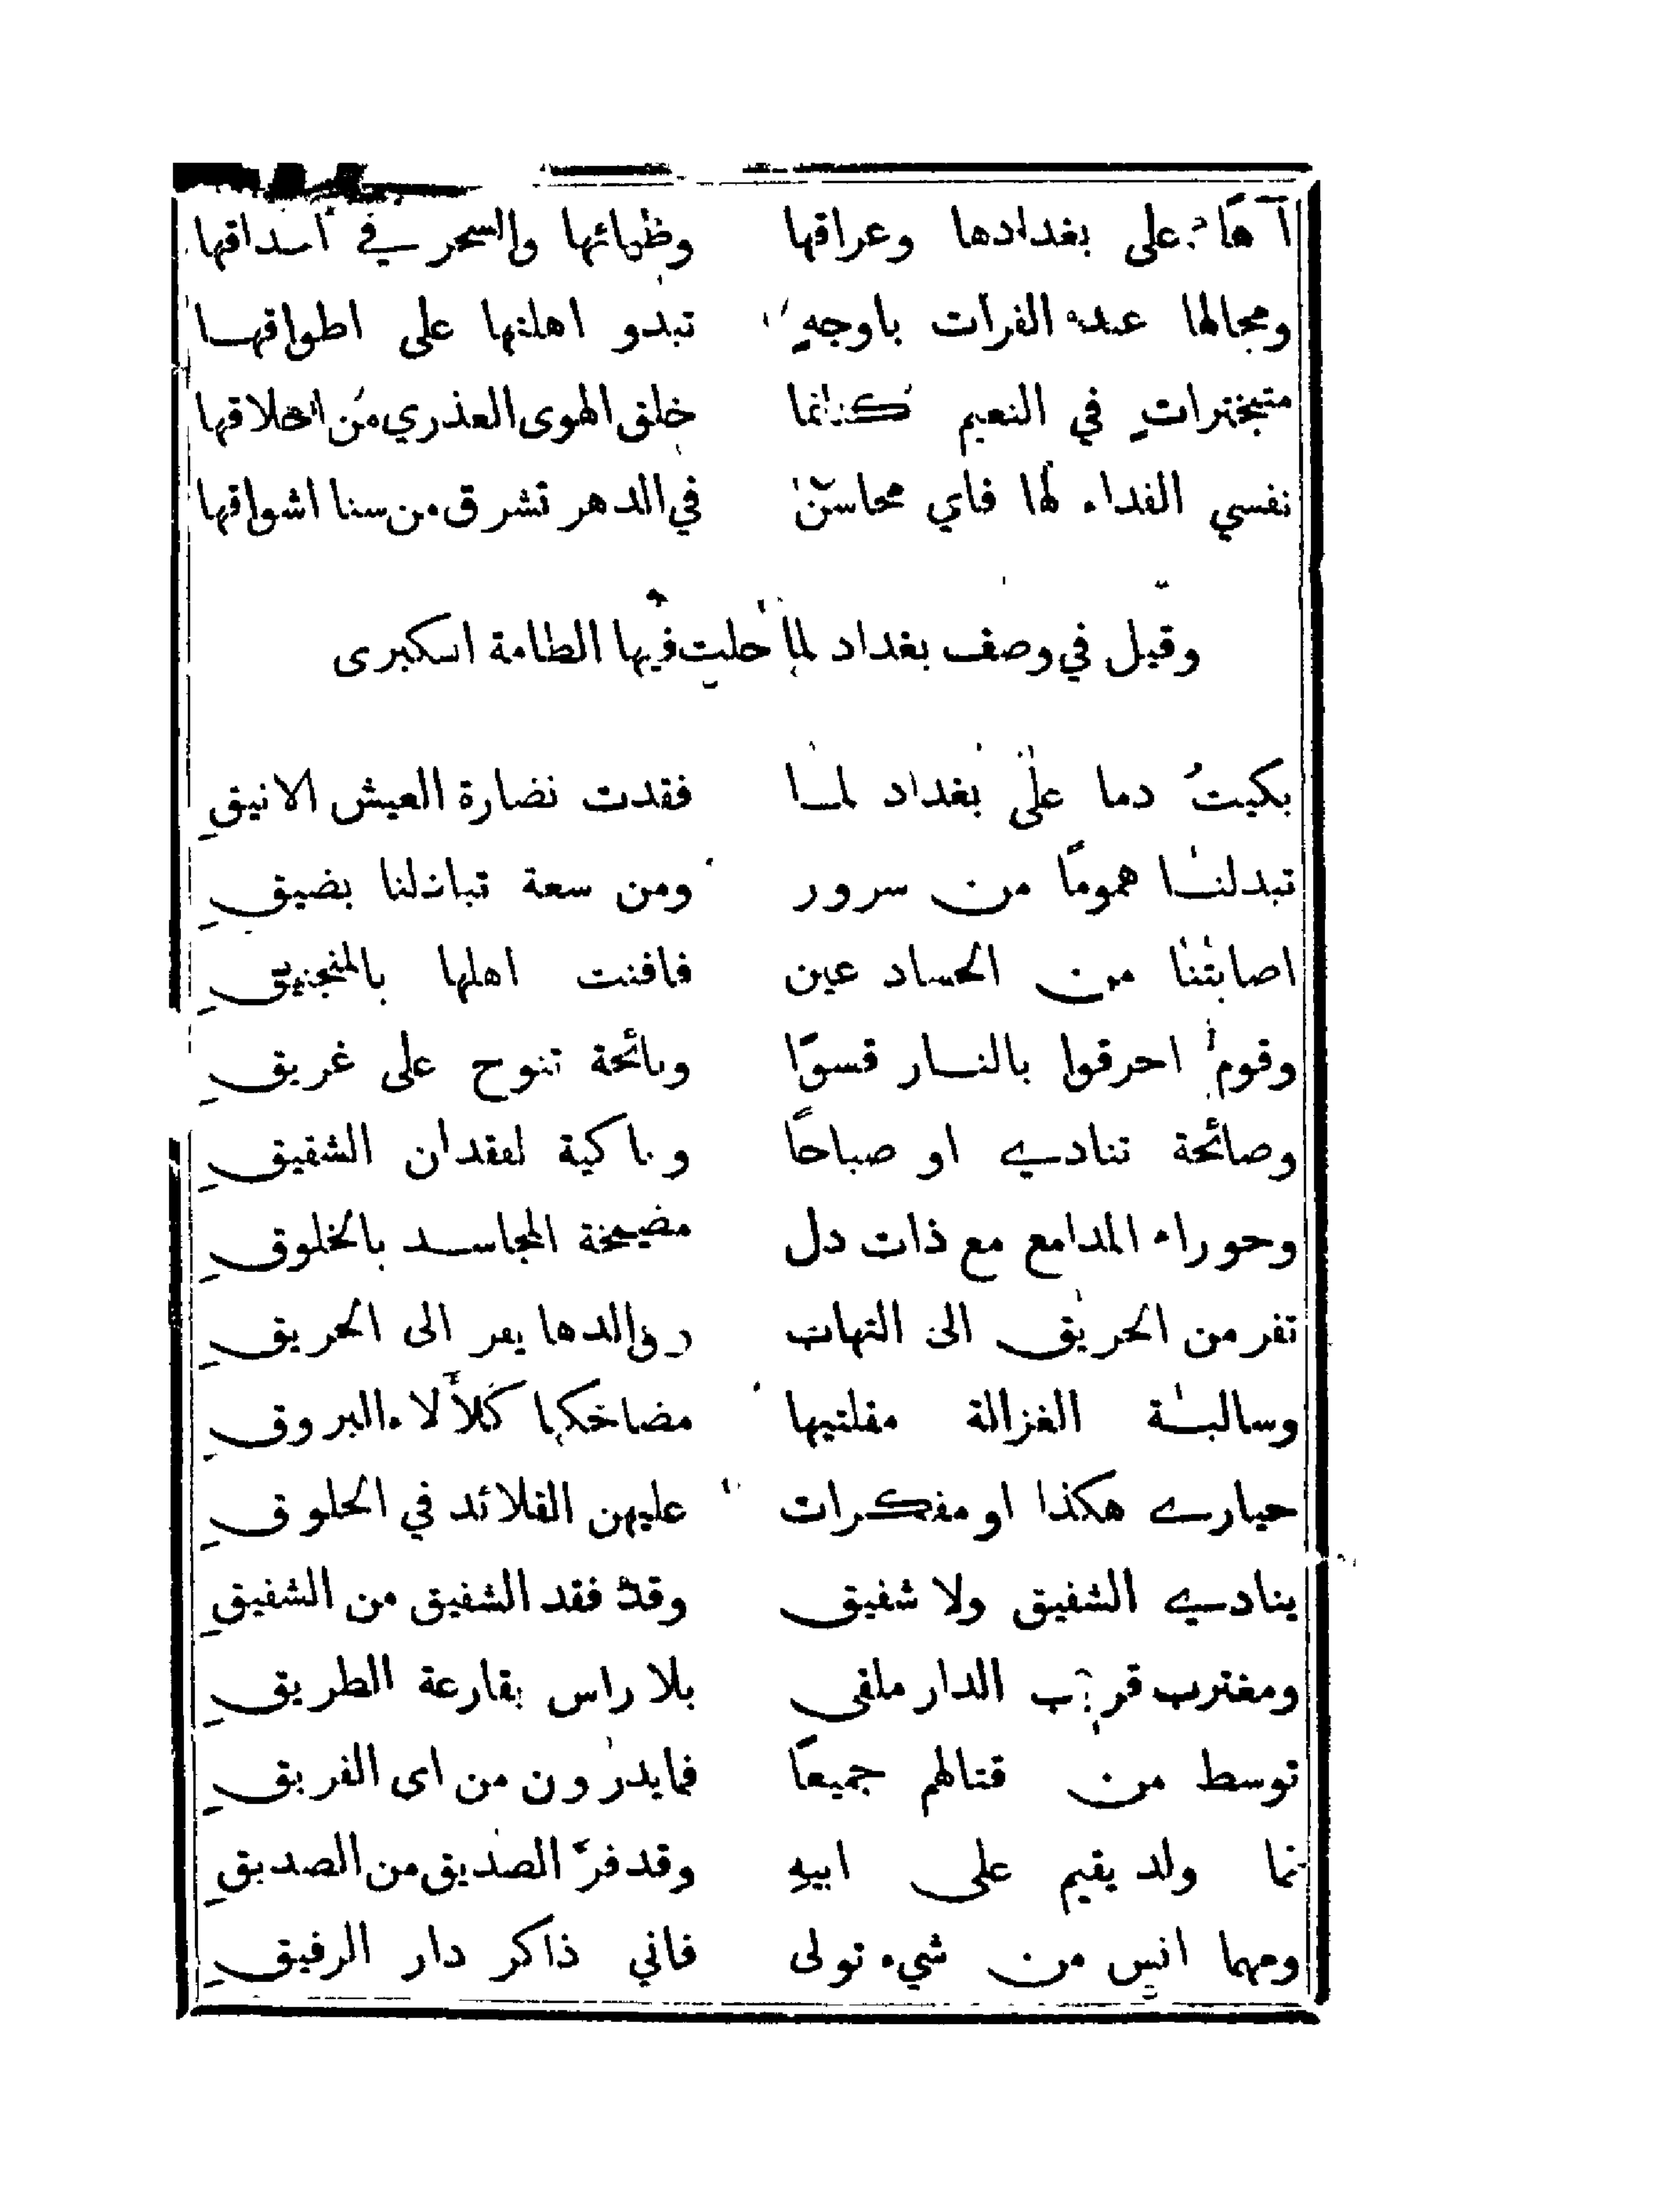 آهًا على بغدادها وعراقها وظبائها والسحر في احداقها
ومجالها عند الفرات باوجهٍ تبدو اهلتها على اطواقها
متبخترات في النعيم كانما خلق الهوى العذري من اخلاقها
نفسي الفداء لها فاي محاسن في الدهر تشرق من سنا اشواقها
وقيل في وصف بغداد لما حلت فيها الطامة الكبرى
بكيتُ دما على بغداد لما فقدت نضارة العيش الانيقِ
تبدلنا همومًا من سرور ومن سعة تباذلنا بضيقِ
اصابتنا من الحساد عين فافنت اهلها بالمنجنيقِ
وقوم احرقوا بالنار قسوًا ونائحة تنوح على غريقِ
وصائحة تنادي او صباحًا وباكية لفقدان الشفيقِ
وحوراء المدامع مع ذات دل مضيخة المجاسد بالخلوقِ
تفر من الحريق الى التهاب ووالدها يفر الى الحريقِ
وسالبة الغزالة مقلتيها مضاحكها كلألاء البروقِ
حيارى هكذا او مفكرات عليهن القلائد في الحلوقِ
ينادي الشفيق ولا شفيق وقد فقد الشفيق من الشفيقِ
ومغترب قريب الدار ملقى بلا راس بقارعة الطريقِ
توسط من قتالهم جميعًا فما يدرون من اى الفريقِ
فما ولد يقيم على ابيهِ وقد فرّ الصديق من الصديقِ
ومهما انس من شيء تولى فاني ذاكر دار الرفيقِ